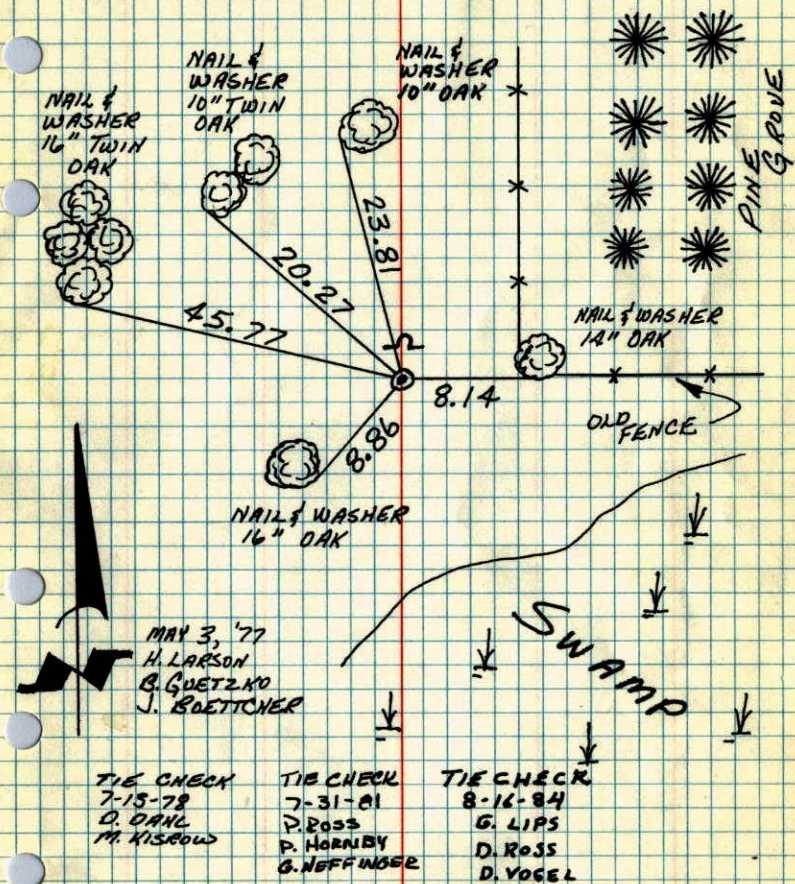 NAIL &
WASHER
16" TWIN
OAK
NAIL &
WASHER
10" TWIN
OAK
NAIL &
WASHER
10" OAK
PINE
GROVE
23.81
20.27
45.77
NAIL & WASHER
14" OAK
8.14
OLD
FENCE
8.86
NAIL & WASHER
16" OAK
SWAMP
MAY 3, '77
H. LARSON
B. GUETZKO
J. BOETTCHER
TIE CHECK
7-15-78
D. DAHL
M. KISROW
TIE CHECK
7-31-81
P. ROSS
P. HORNBY
G. NEFFINGER
TIE CHECK
8-16-84
G. LIPS
D. ROSS
D. VOGEL